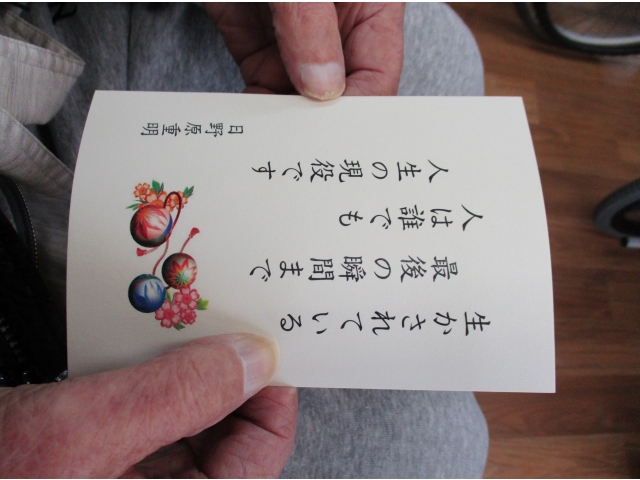 生かされている
最後の瞬間まで
人は誰でも
人生の現役です
日野原重明